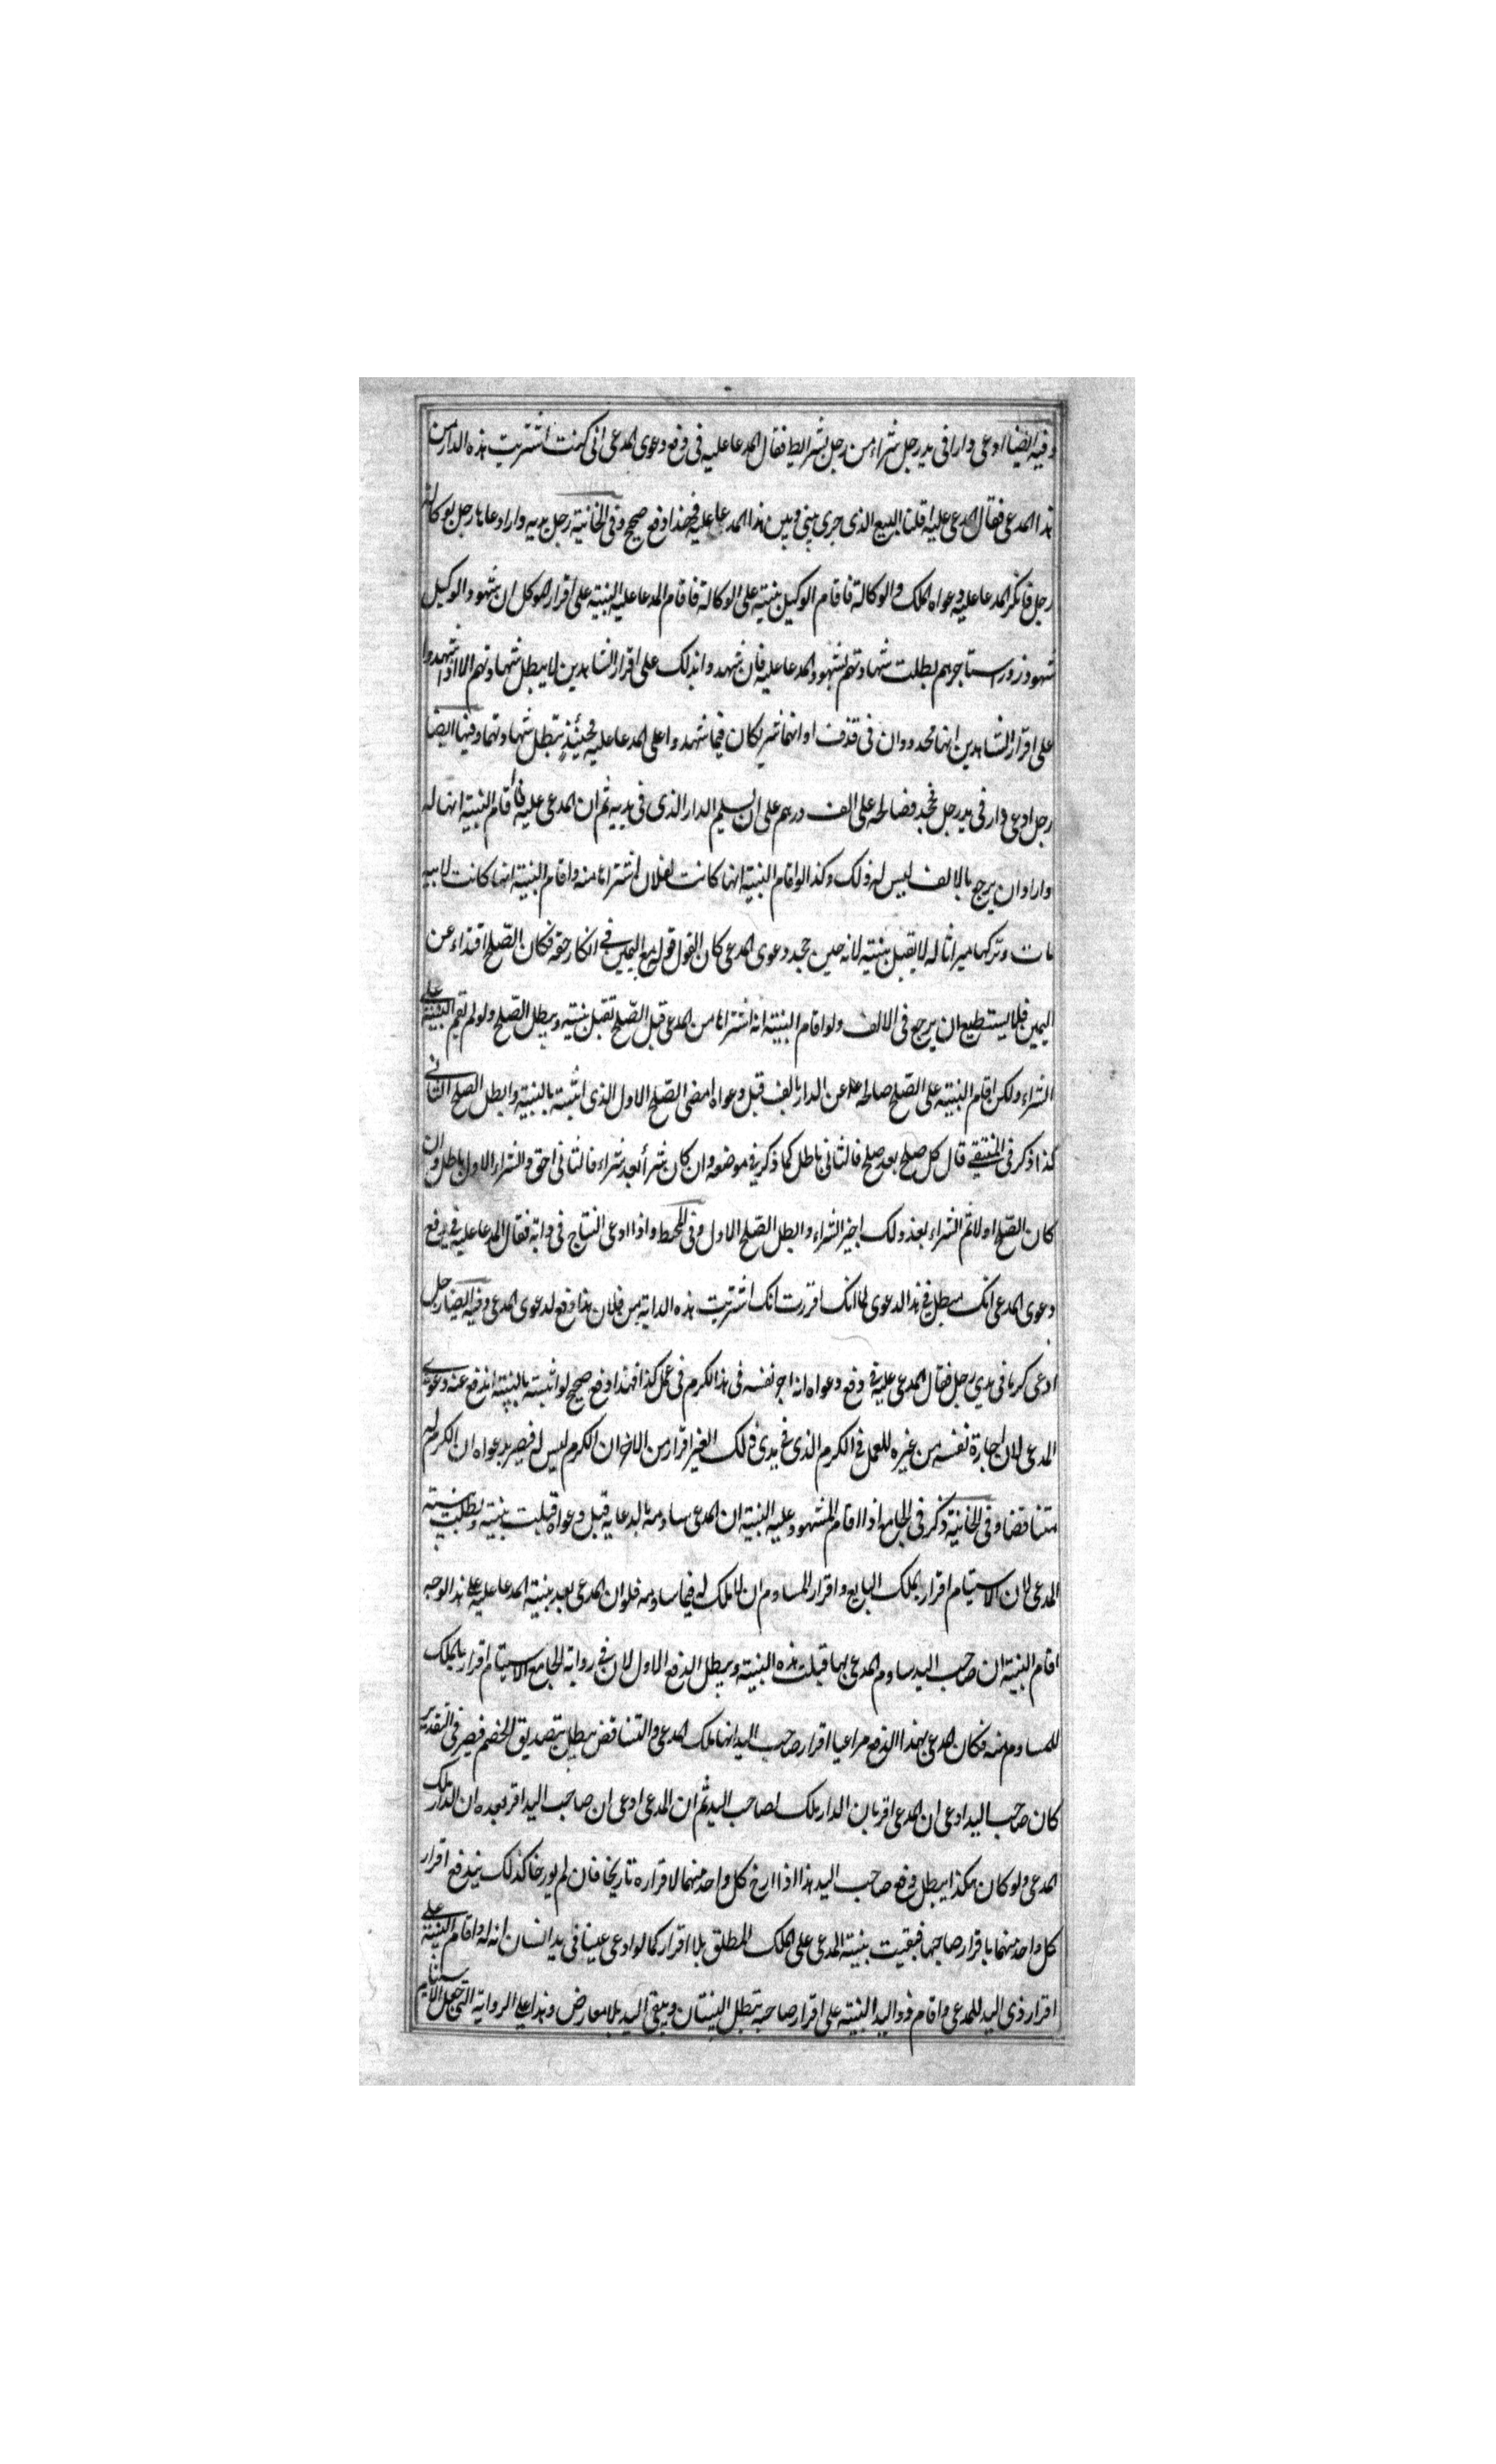 وفيه ايضا ادعى دارا فى يد رجل شراء من رجل بشرائط فقال المدعا عليه فى دفع دعوى المدعى انى كنت اشتريت هذه الدار من
هذا المدعى فقال المدعى عليه اقلنا البيع الذى جرى بينى وبين هذا المدعا عليه فهذا دفع صحيح وفى الخانية رجل بيديه دار ادعاها رجل بوكالة
رجل فانكر المدعا عليه دعواه الملك والوكالة فاقام الوكيل بينة على الوكالة فاقام المدعا عليه البينة على اقرار الموكل ان شهود الوكيل
شهود زور استاجرهم بطلت شهادتهم لشهود المدعا عليه فان شهدوا بذلك على اقرار الشاهدين لا يبطل شهادتهم الا اذا شهدوا
على اقرار الشاهدين انهما محدودان فى قذف او انهما شريكان فيما شهدوا على المدعا عليه فحينئذ تبطل شهادتهما وفيها ايضا
رجل ادعى دار فى يد رجل فجحد فصالحه على الف درهم على ان يسلم الدار الذى فى يديه ثم ان المدعى عليه اقام البينة انها له
واراد ان يرجع بالالف ليس له ذلك وكذا لو اقام البينة انها كانت لفلان اشتراها منه واقام البينة انها كانت لابيه
مات وتركها ميراثا له لا يقبل بينته لانه حين جحد دعوى المدعى كان القول قوله مع اليمين فى انكار حقه فكان الصلح افتداء عن
اليمين فلا يستطيع ان يرجع فى الالف ولو اقام البينة انه اشتراها من المدعى قبل الصلح تقبل بينته ويبطل الصلح ولو لم تقم البينة على
الشراء ولكن اقام البينة على الصلح صالحه عن الدار بالف قبل دعواه امضى الصلح الاول الذى اثبته بالبينة وابطل الصلح الثانى
كذا ذكر فى المنتقى قال كل صلح بعد صلح فالثانى باطل كما ذكر فى موضعه وان كان شرأ بعد شراء فالثانى احق والشراء الاول باطل وان
كان الصلح اولا ثم الشراء بعد ذلك اجيز الشراء وابطل الصلح الاول وفى المحيط واذا ادعى النتاج فى دابة فقال المدعا عليه فى دفع
دعوى المدعى انك مبطل فى هذا الدعوى لما انك اقررت انك اشتريت هذه الدابة من فلان هذا دفع لدعوى المدعى وفيه ايضا رجل
ادعى كرما فى يدى رجل فقال المدعى عليه فى دفع دعواه انه اجر نفسه فى هذا الكرم فى عمل كذا فهذا دفع صحيح لو اثبته بالبينة اندفع عنه دعوى
المدعى لان اجارة نفسه من غيره للعمل فى الكرم الذى فى يدى ذلك الغير اقرار من الاخر ان الكرم ليس له فيصير بدعواه ان الكرم له
متناقضا وفى الخانية ذكر فى الجامع اذا اقام المشهود عليه البينة ان المدعى ساومه بالمدعا به قبل دعواه قبلت بينته وبطلت بينة
المدعى لان الاستيام اقرار بملك البايع واقرار المساوم ان لا ملك له فيما ساومه فلو ان المدعى بعد بينة المدعا عليه على هذا الوجه
اقام البينة ان صاحب اليد ساوم المدعى بها قبلت هذه البينة ويبطل الدفع الاول لان فى رواية الجامع الاستيام اقرار بالملك
للمساوم منه فكان المدعى بهذا الدفع مراعيا اقرار صاحب اليد انها ملك المدعى والتناقض يبطل بتصديق الخصم فيصر فى التقدير
كان صاحب اليد ادعى ان المدعى اقر بان الدار ملك لصاحب اليد ثم ان المدعى ادعى ان صاحب اليد اقر بعده ان الدار ملك
المدعى ولو كان هكذا يبطل دفع صاحب اليد هذا اذا ارخ كل واحد منهما لاقراره تاريخا فان لم يورخا كذلك يندفع اقرار
كل واحد منهما باقرار صاحبها فبقيت بينة المدعى على الملك المطلق بلا اقرار كما لو ادعى عينا فى يد انسان انه له واقام البينة على
اقرار ذى اليد للمدعى واقام ذو اليد البينة على اقرار صاحبه تبطل البينتان ويبقى اليد بلا معارض وهذا على الرواية التى جعل الاستيام